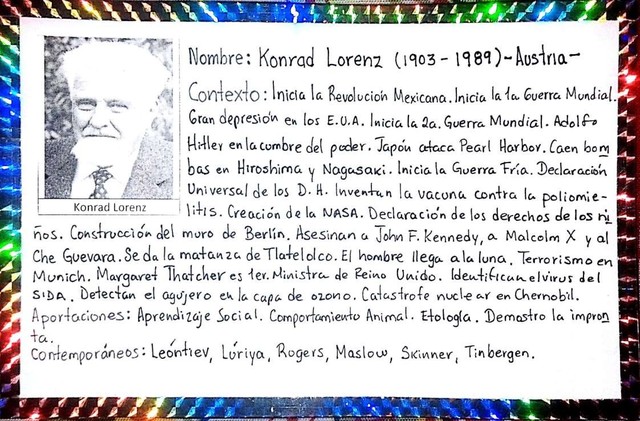 Konrad Lorenz
Nombre: Konrad Lorenz (1903 - 1989) - Austria -
Contexto: Inicia la Revolución Mexicana. Inicia la 1a Guerra Mundial.
Gran depresión en los E.U.A. Inicia la 2a. Guerra Mundial. Adolfo
Hitler en la cumbre del poder. Japón ataca Pearl Harbor. Caen bom
bas en Hiroshima y Nagasaki. Inicia la Guerra Fría. Declaración
Universal de los D. H. Inventan la vacuna contra la poliomie-
litis. Creación de la NASA. Declaración de los derechos de los ni
ños. Construcción del muro de Berlín. Asesinan a John F. Kennedy, a Malcolm X y al
Che Guevara. Se da la matanza de Tlatelolco. El hombre llega a la luna. Terrorismo en
Munich. Margaret Thatcher es 1er. Ministra de Reino Unido. Identifican el virus del
SIDA. Detectan el agujero en la capa de ozono. Catastrofe nuclear en Chernobil.
Aportaciones: Aprendizaje Social. Comportamiento Animal. Etología. Demostro la impron
ta.
Contemporáneos: Leóntiev, Lúriya, Rogers, Maslow, Skinner, Tinbergen.